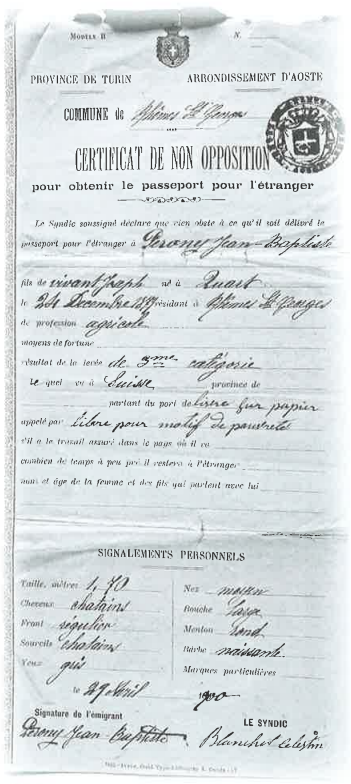 MODÈLE B N.
PROVINCE DE TURIN ARRONDISSEMENT D'AOSTE
COMMUNE de Rhêmes St Georges
CERTIFICAT DE NON OPPOSITION
pour obtenir le passeport pour l'étranger
Le Syndic soussigné déclare que rien obste à ce qu'il soit délivré le
passeport pour l'étranger à Perony Jean-Baptiste
fils de vivant Joseph né à Quart
le 24 Décembre résidant à Rhêmes St Georges
de profession agricole
moyens de fortune
résultat de la levée de 3me catégorie
le quel va à Suisse province de
partant du port de livre sur papier
appelé par libre pour motif de pauvreté
s'il a le travail assuré dans le pays où il va
combien de temps à peu près il restera à l'étranger
nom et âge de la femme et des fils qui partent avec lui
SIGNALEMENTS PERSONNELS
Taille, mètres 1,70
Cheveux chatains
Front régulier
Sourcils chatains
Yeux gris
Nez moyen
Bouche large
Menton rond
Barbe naissante
Marques particulières
le 29 Avril 900
Signature de l'émigrant
Perony Jean Baptiste
LE SYNDIC
Blanchet Celestin